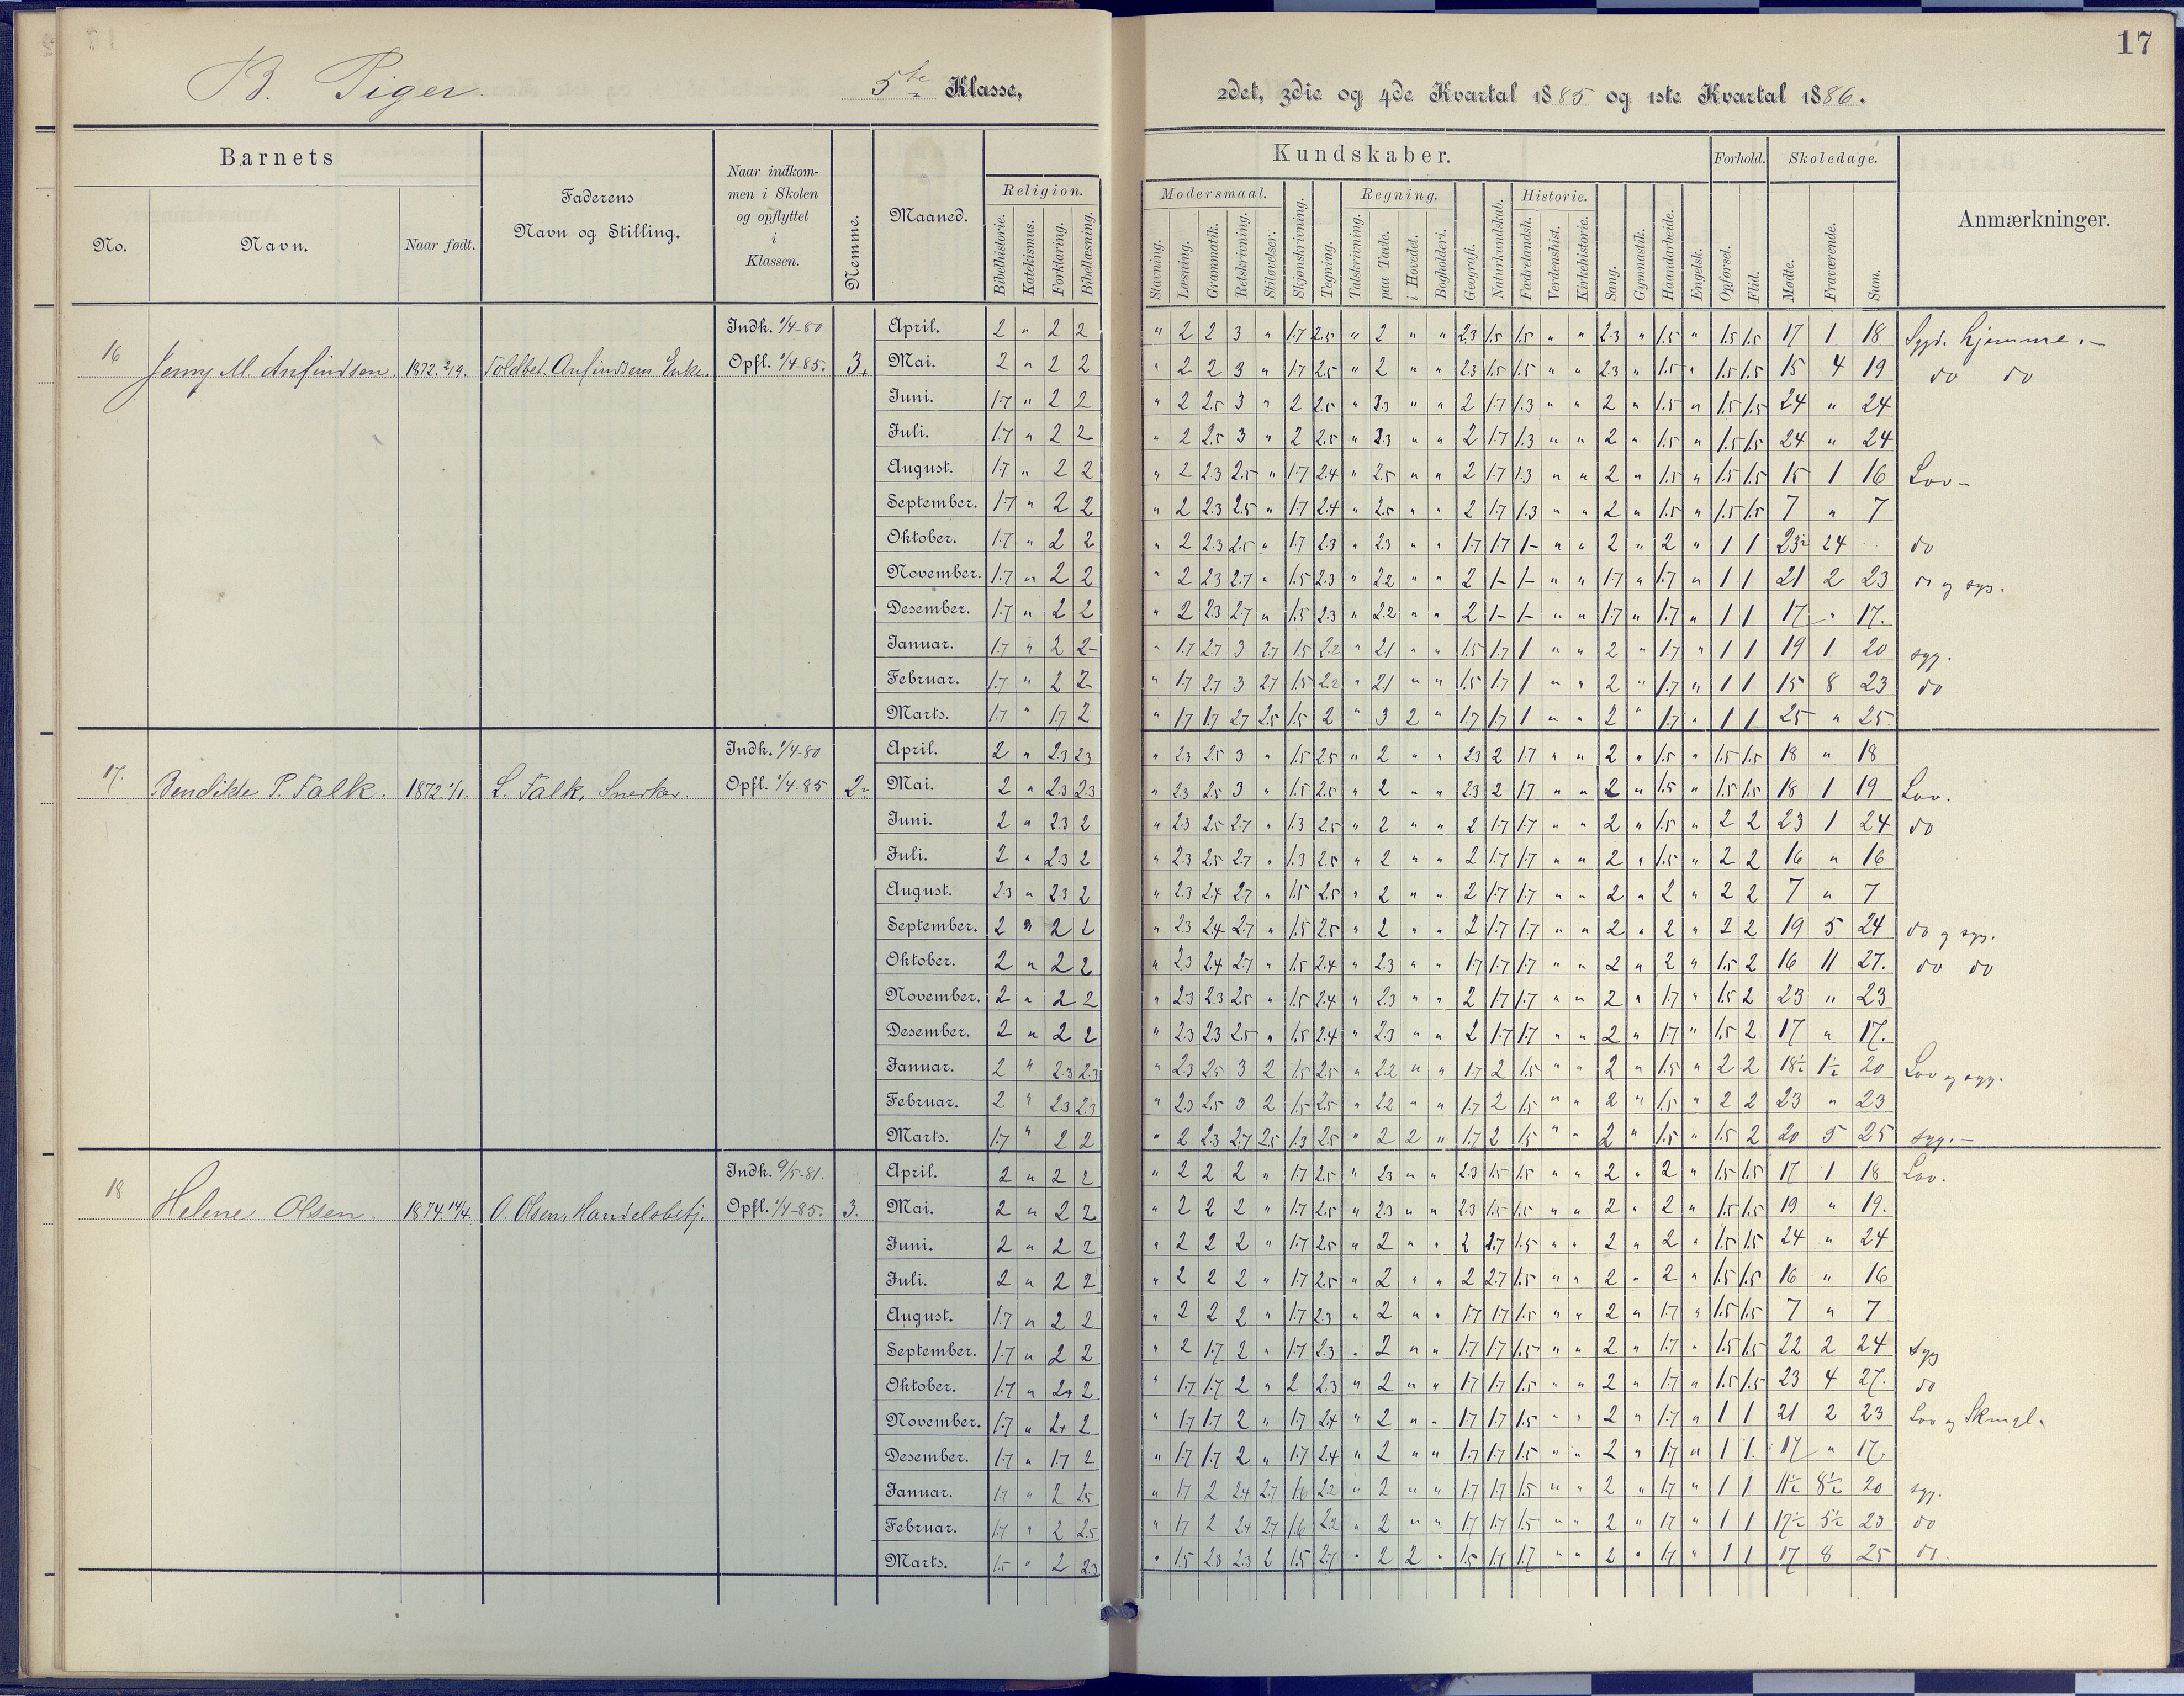 17
B. Piger. 5te Klasse, 2det, 3die og 4de Kvartal 1885 og 1ste Kvartal 1886.
Barnets
No. Navn. Naar født.
Faderens Navn og Stilling.
Naar indkom-
men i Skolen
og opflyttet
i
Klassen.
Nemme.
Maaned.
Kundskaber.
Religion.
Bibelhistorie. Katekismus. Forklaring. Bibellæsning.
Modersmaal.
Stavning. Læsning. Grammatik. Retskrivning. Stiløvelser.
Skjønskrivning. Tegning.
Regning.
Talskrivning. paa Tavle. i Hovedet. Bogholderi.
Geografi. Naturkundskab.
Historie.
Fædrelandsh. Verdenshist. Kirkehistorie.
Sang. Gymnastik. Haandarbeide. Engelsk.
Forhold.
Opførsel. Flid.
Skoledage.
Mødte. Fraværende. Sum.
Anmærkninger.
16 Jenny M. Anfindsen. 1872. 2/9. Toldbet. Anfindsens Enke. Indk. 1/4-80 Opfl. 1/4-85. 3.
April. 2 " 2 2 " 2 2 3 " 1.7 2.5 " 2 " " 2.3 1.5 1.5 " " 2.3 " 1.5 " 1.5 1.5 17 1 18 Sygd. hjemme.-
Mai. 2 " 2 2 " 2 2 3 " 1.7 2.5 " 2 " " 2.3 1.5 1.5 " " 2.3 " 1.5 " 1.5 1.5 15 4 19 do do
Juni. 1.7 " 2 2 " 2 2.5 3 " 2 2.5 " 2.3 " " 2 1.7 1.3 " " 2 " 1.5 " 1.5 1.5 24 " 24
Juli. 1.7 " 2 2 " 2 2.5 3 " 2 2.5 " 2.3 " " 2 1.7 1.3 " " 2 " 1.5 " 1.5 1.5 24 " 24
August. 1.7 " 2 2 " 2 2.3 2.5 " 1.7 2.4 " 2.5 " " 2 1.7 1.3 " " 2 " 1.5 " 1.5 1.5 15 1 16 Lov-
September. 1.7 " 2 2 " 2 2.3 2.5 " 1.7 2.4 " 2.5 " " 2 1.7 1.3 " " 2 " 1.5 " 1.5 1.5 7 " 7
Oktober. 1.7 " 2 2 " 2 2.3 2.5 " 1.7 2.3 " 2.3 " " 1.7 1.7 1- " " 2 " 2 " 1 1 23½ 24 do
November. 1.7 " 2 2 " 2 2.3 2.7 " 1.5 2.3 " 2.2 " " 2 1- 1- " " 1.7 " 1.7 " 1 1 21 2 23 do og syg.
Desember. 1.7 " 2 2 " 2 2.3 2.7 " 1.5 2.3 " 2.2 " " 2 1- 1- " " 1.7 " 1.7 " 1 1 17 " 17.
Januar. 1.7 " 2 2- " 1.7 2.7 3 2.7 1.5 2.2 " 2.1 " " 1.5 1.7 1 " " 2 " 1.7 " 1 1 19 1 20 syg.
Februar. 1.7 " 2 2- " 1.7 2.7 3 2.7 1.5 2.2 " 2.1 " " 1.5 1.7 1 " " 2 " 1.7 " 1 1 15 8 23 do
Marts. 1.7 " 1.7 2 " 1.7 1.7 2.7 2.5 1.5 2 " 3 2 " 1.7 1.7 1 " " 2 " 1.7 " 1 1 25 " 25.
17. Bendikte P. Falk. 1872. 1/1. L. Falk, Snerker. Indk. 1/4-80 Opfl. 1/4-85 2-
April. 2 " 2.3 2.3 " 2.3 2.5 3 " 1.5 2.5 " 2 " " 2.3 2 1.7 " " 2 " 1.5 " 1.5 1.5 18 " 18
Mai. 2 " 2.3 2.3 " 2.3 2.5 3 " 1.5 2.5 " 2 " " 2.3 2 1.7 " " 2 " 1.5 " 1.5 1.5 18 1 19 Lov.
Juni. 2 " 2.3 2 " 2.3 2.5 2.7 " 1.3 2.5 " 2 " " 2 1.7 1.7 " " 2 " 1.5 " 2 2 23 1 24 do
Juli. 2 " 2.3 2 " 2.3 2.5 2.7 " 1.3 2.5 " 2 " " 2 1.7 1.7 " " 2 " 1.5 " 2 2 16 " 16
August. 2.3 " 2.3 2 " 2.3 2.4 2.7 " 1.5 2.5 " 2 " " 2 1.7 1.7 " " 2 " 2 " 2 2 7 " 7
September. 2 " 2 2 " 2.3 2.4 2.7 " 1.5 2.5 " 2 " " 2 1.7 1.7 " " 2 " 2 " 2 2 19 5 24 do og syg.
Oktober. 2 " 2 2 " 2.3 2.4 2.7 " 1.5 2.4 " 2.3 " " 1.7 1.7 1.7 " " 2 " 2 " 1.5 2 16 11 27. do do
November. 2 " 2 2 " 2.3 2.3 2.5 " 1.5 2.4 " 2.3 " " 2 1.7 1.7 " " 2 " 1.7 " 1.5 2 23 " 23
Desember. 2 " 2 2 " 2.3 2.3 2.5 " 1.5 2.4 " 2.3 " " 2 1.7 1.7 " " 2 " 1.7 " 1.5 2 17 " 17.
Januar. 2 " 2.3 2.3 " 2.3 2.5 3 2 1.5 2.5 " 2.2 " " 1.7 2 1.5 " " 2 " 1.5 " 2 2 18½ 1½ 20 Lov og syg.
Februar. 2 " 2.3 2.3 " 2.3 2.5 3 2 1.5 2.5 " 2.2 " " 1.7 2 1.5 " " 2 " 1.5 " 2 2 23 " 23
Marts. 1.7 " 2 2 " 2 2.3 2.7 2.5 1.3 2.5 " 2 2 " 1.7 2 1.5 " " 2 " 1.5 " 1.5 2 20 5 25 syg.-
18 Helene Olsen. 1874. 14/4. O. Olsen, Handelsbetj. Indk. 9/5-81. Opfl. 1/4-85. 3.
April. 2 " 2 2 " 2 2 2 " 1.7 2.5 " 2.3 " " 2.3 1.5 1.5 " " 2 " 2 " 1.5 1.5 17 1 18 Lov.
Mai. 2 " 2 2 " 2 2 2 " 1.7 2.5 " 2.3 " " 2.3 1.5 1.5 " " 2 " 2 " 1.5 1.5 19 " 19.
Juni. 2 " 2 2 " 2 2 2 " 1.7 2.5 " 2 " " 2 2.7 1.5 " " 2 " 2 " 1.5 1.5 24 " 24
Juli. 2 " 2 2 " 2 2 2 " 1.7 2.5 " 2 " " 2 2.7 1.5 " " 2 " 2 " 1.5 1.5 16 " 16
August. 1.7 " 2 2 " 2 2 2 " 1.7 2.3 " 2 " " 1.7 1.7 1.5 " " 2 " 1.7 " 1.5 1.5 7 " 7
September. 1.7 " 2 2 " 2 1.7 2 " 1.7 2.3 " 2 " " 1.7 1.7 1.5 " " 2 " 1.7 " 1.5 1.5 22 2 24 Syg
Oktober. 1.7 " 2+ 2 " 1.7 1.7 2 " 2 2.3 " 2 " " 1.7 1.7 1.5 " " 2 " 1.7 " 1.5 1.5 23 4 27. do
November. 1.7 " 2+ 2 " 1.7 1.7 2 " 1.7 2.4 " 2 " " 1.7 1.7 1.5 " " 2 " 1.7 " 1 1 21 2 23 Lov og
Desember. 1.7 " 1.7 2 " 1.7 1.7 2 " 1.7 2.4 " 2 " " 1.7 1.7 1.5 " " 2 " 1.7 " 1 1. 17 " 17.
Januar. 1.7 " 2 2.5 " 1.7 2 2.4 2.7 1.6 2.2 " 2 " " 1.7 1.7 1.5 " " 2 " 1.7 " 1 1 11½ 8½ 20 syg.
Februar. 1.7 " 2 2.5 " 1.7 2 2.4 2.7 1.6 2.2 " 2 " " 1.7 1.7 1.5 " " 2 " 1.7 " 1 1 17½ 5½ 23 do
Marts. 1.5 " 2 2.3 " 1.5 2.3 2.3 2 1.5 2.7 " 2 2 " 1.5 1.7 1.7 " " 2 " 1.7 " 1 1 17 8 25 do.